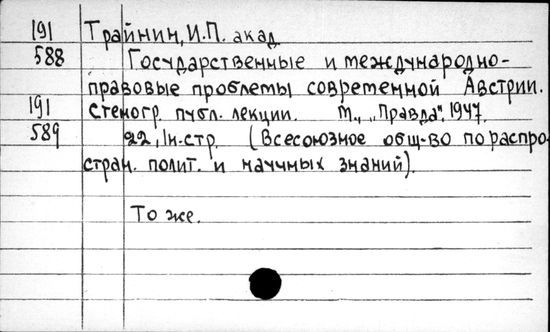 191 Трайнин, И.П. акад.
588 Государственные и международно-
правовые проблемы современной Австрии.
191 Стеногр. публ. лекции. М., „Правда“, 1947.
589 22, 1н. стр. (Всесоюзное общ-во по распро-
стран. полит. и научных знаний).
То же.